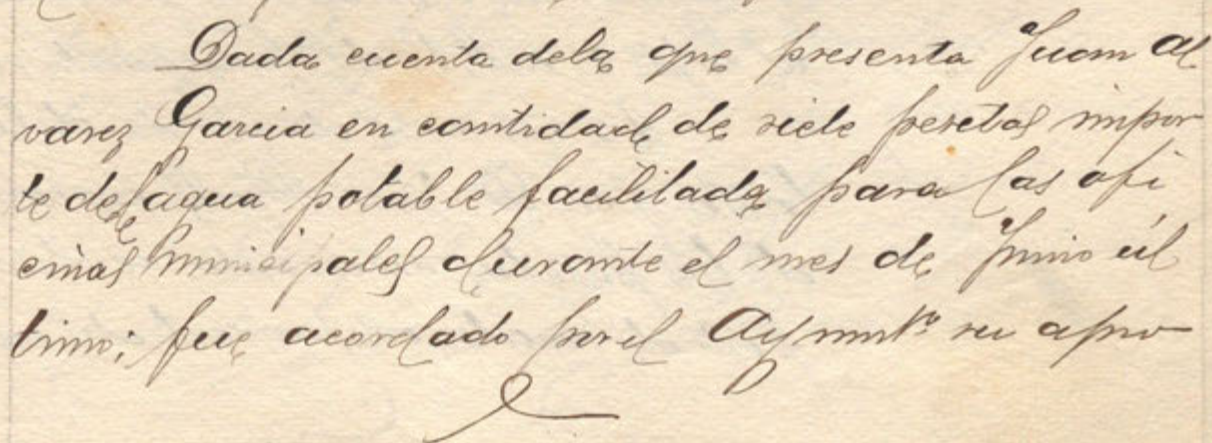 Dada cuenta dela que presenta Juan Al
varez Garcia en cantidad de siete pesetas impor
te del agua potable facilitada para las ofi
cinas municipales durante el mes de Junio úl
timo; fue acordado por el Ayunt.º su apro